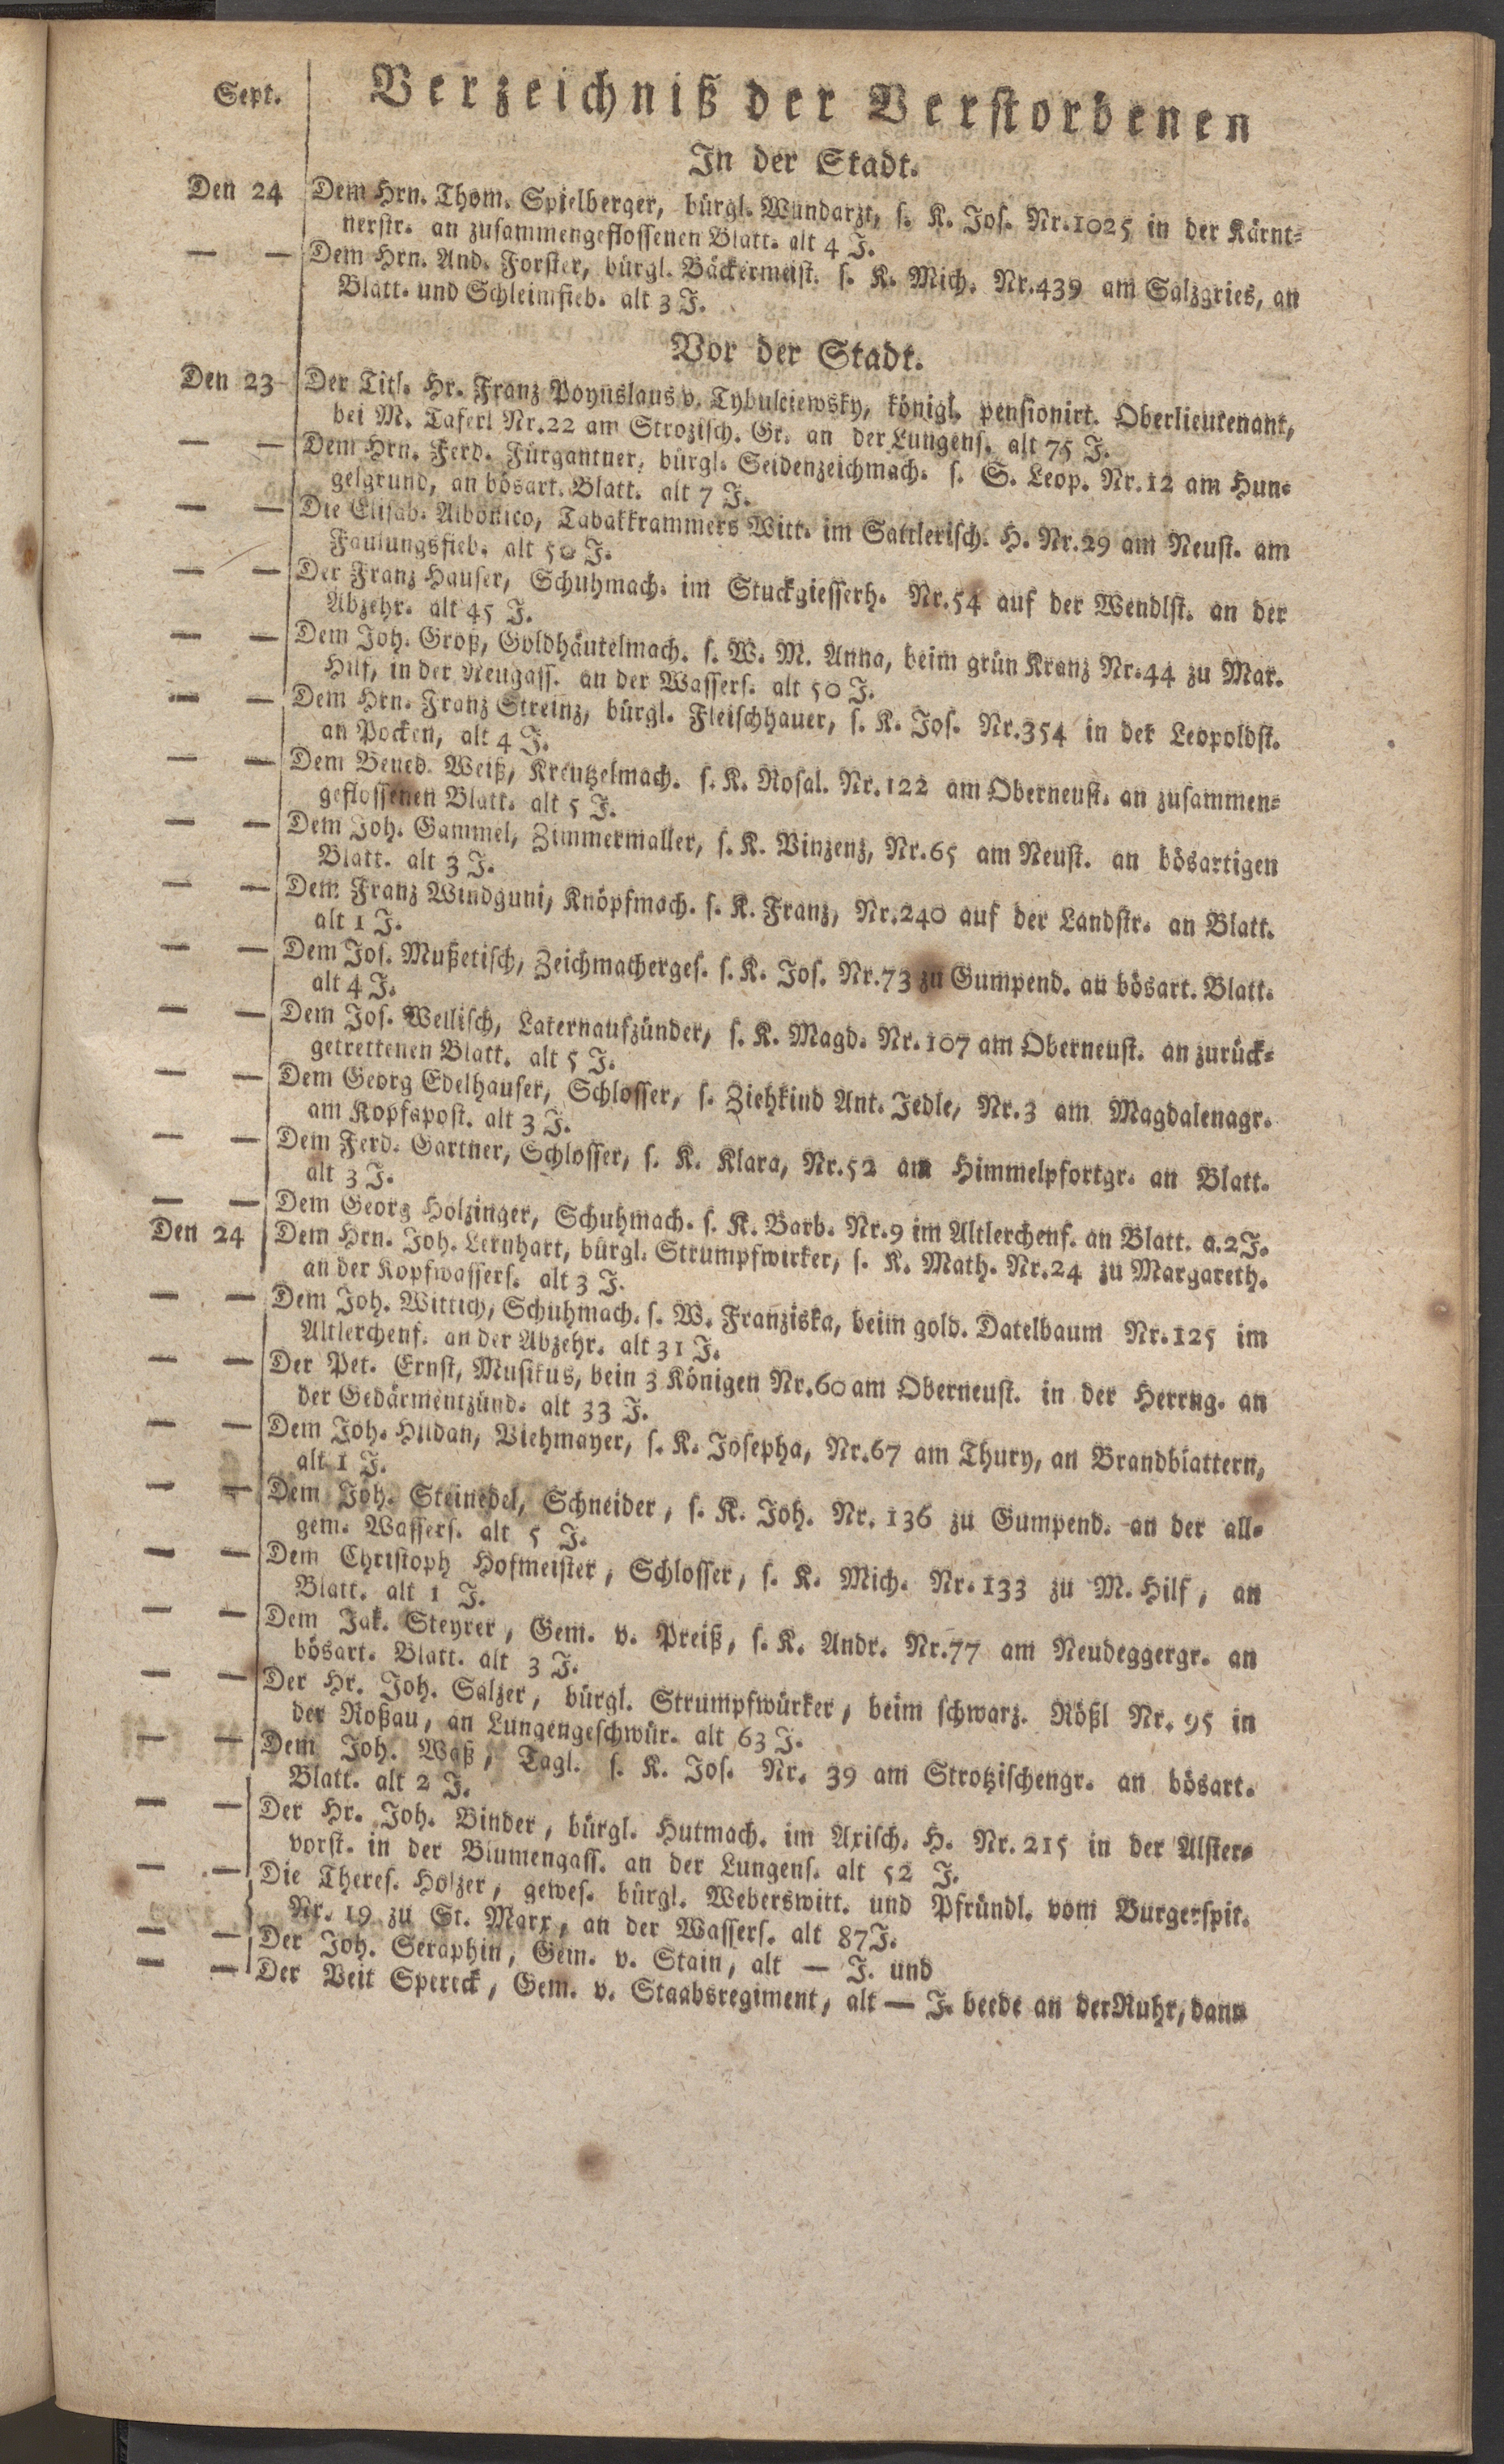 Sept. Verzeichniß der Verstorbenen
In der Stadt.
Den 24 Dem Hrn. Thom. Spielberger, bürgl. Wundarzt, s. K. Jos. Nr.1025 in der Kärnt-
nerstr. an zusammengeflossenen Blatt. alt 4 J.
— — Dem Hrn. And. Forster, bürgl. Bäckermeist. s. K. Mich. Nr.439 am Salzgries, an
Blatt. und Schleimfieb. alt 3 J.
Vor der Stadt.
Den 23 Der Titl. Hr. Franz Poynslaus v. Tybulciewsky, königl. pensionirt. Oberlieutenant,
bei M. Taferl Nr.22 am Strozisch. Gr. an der Lungens. alt 75 J.
— — Dem Hrn. Ferd. Fürgantner, bürgl. Seidenzeichmach. s. S. Leop. Nr.12 am Hun-
gelgrund, an bösart. Blatt. alt 7 J.
— — Die Elisab. Albonico, Tabakkrammers Witt. im Sattlerisch. H. Nr.29 am Neust. am
Faulungsfieb. alt 50 J.
— — Der Franz Hauser, Schuhmach. im Stuckgiesserh. Nr.54 auf der Wendlst. an der
Abzehr. alt 45 J.
— — Dem Joh. Groß, Goldhäutelmach. s. W. M. Anna, beim grün Kranz Nr.44 zu Mar.
Hilf, in der Neugass. an der Wassers. alt 50 J.
— — Dem Hrn. Franz Streinz, bürgl. Fleischhauer, s. K. Jos. Nr.354 in der Leopoldst.
an Pocken, alt 4 J.
— — Dem Bened. Weiß, Kreutzelmach. s. K. Rosal. Nr.122 am Oberneust. an zusammen-
geflossenen Blatt. alt 5 J.
— — Dem Joh. Gammel, Zimmermaller, s. K. Vinzenz, Nr.65 am Neust. an bösartigen
Blatt. alt 3 J.
— — Dem Franz Windguni, Knöpfmach. s. K. Franz, Nr.240 auf der Landstr. an Blatt.
alt 1 J.
— — Dem Jos. Mußetisch, Zeichmacherges. s. K. Jos. Nr.73 zu Gumpend. an bösart. Blatt.
alt 4 J.
— — Dem Jos. Wellisch, Laternaufzünder, s. K. Magd. Nr.107 am Oberneust. an zurück-
getrettenen Blatt. alt 5 J.
— — Dem Georg Edelhauser, Schlosser, s. Ziehkind Ant. Jedle, Nr.3 am Magdalenagr.
am Kopfapost. alt 3 J.
— — Dem Ferd. Gartner, Schlosser, s. K. Klara, Nr.52 am Himmelpfortgr. an Blatt.
alt 3 J.
— — Dem Georg Holzinger, Schuhmach. s. K. Barb. Nr.9 im Altlerchenf. an Blatt. a.2 J.
Den 24 Dem Hrn. Joh. Lernhart, bürgl. Strumpfwirker, s. K. Math. Nr.24 zu Margareth.
an der Kopfwassers. alt 3 J.
— — Dem Joh. Wittich, Schuhmach. s. W. Franziska, beim gold. Datelbaum Nr.125 im
Altlerchenf. an der Abzehr. alt 31 J.
— — Der Pet. Ernst, Musikus, bein 3 Königen Nr.60 am Oberneust. in der Herrng. an
der Gedärmentzünd. alt 33 J.
— — Dem Joh. Hildan, Viehmayer, s. K. Josepha, Nr.67 am Thury, an Brandblattern,
alt 1 J.
— — Dem Joh. Steinedel, Schneider, s. K. Joh. Nr. 136 zu Gumpend. an der all-
gem. Wassers. alt 5 J.
— — Dem Christoph Hofmeister, Schlosser, s. K. Mich. Nr.133 zu M. Hilf, an
Blatt. alt 1 J.
— — Dem Jak. Steyrer, Gem. v. Preiß, s. K. Andr. Nr.77 am Neudeggergr. an
bösart. Blatt. alt 3 J.
— — Der Hr. Joh. Salzer, bürgl. Strumpfwürker, beim schwarz. Rößl Nr. 95 in
der Roßau, an Lungengeschwür. alt 63 J.
— — Dem Joh. Waß, Tagl. s. K. Jos. Nr. 39 am Strotzischengr. an bösart.
Blatt. alt 2 J.
— — Der Hr. Joh. Binder, bürgl. Hutmach. im Axisch. H. Nr. 215 in der Alster-
vorst. in der Blumengass. an der Lungens. alt 52 J.
— — Die Theres. Holzer, gewes. bürgl. Weberswitt. und Pfründl. vom Burgerspit.
Nr. 19 zu St. Marx, an der Wassers. alt 87 J.
— — Der Joh. Seraphin, Gem. v. Stain, alt — J. und
— — Der Veit Spereck, Gem. v. Staabsregiment, alt — J. beede an der Ruhr, dann